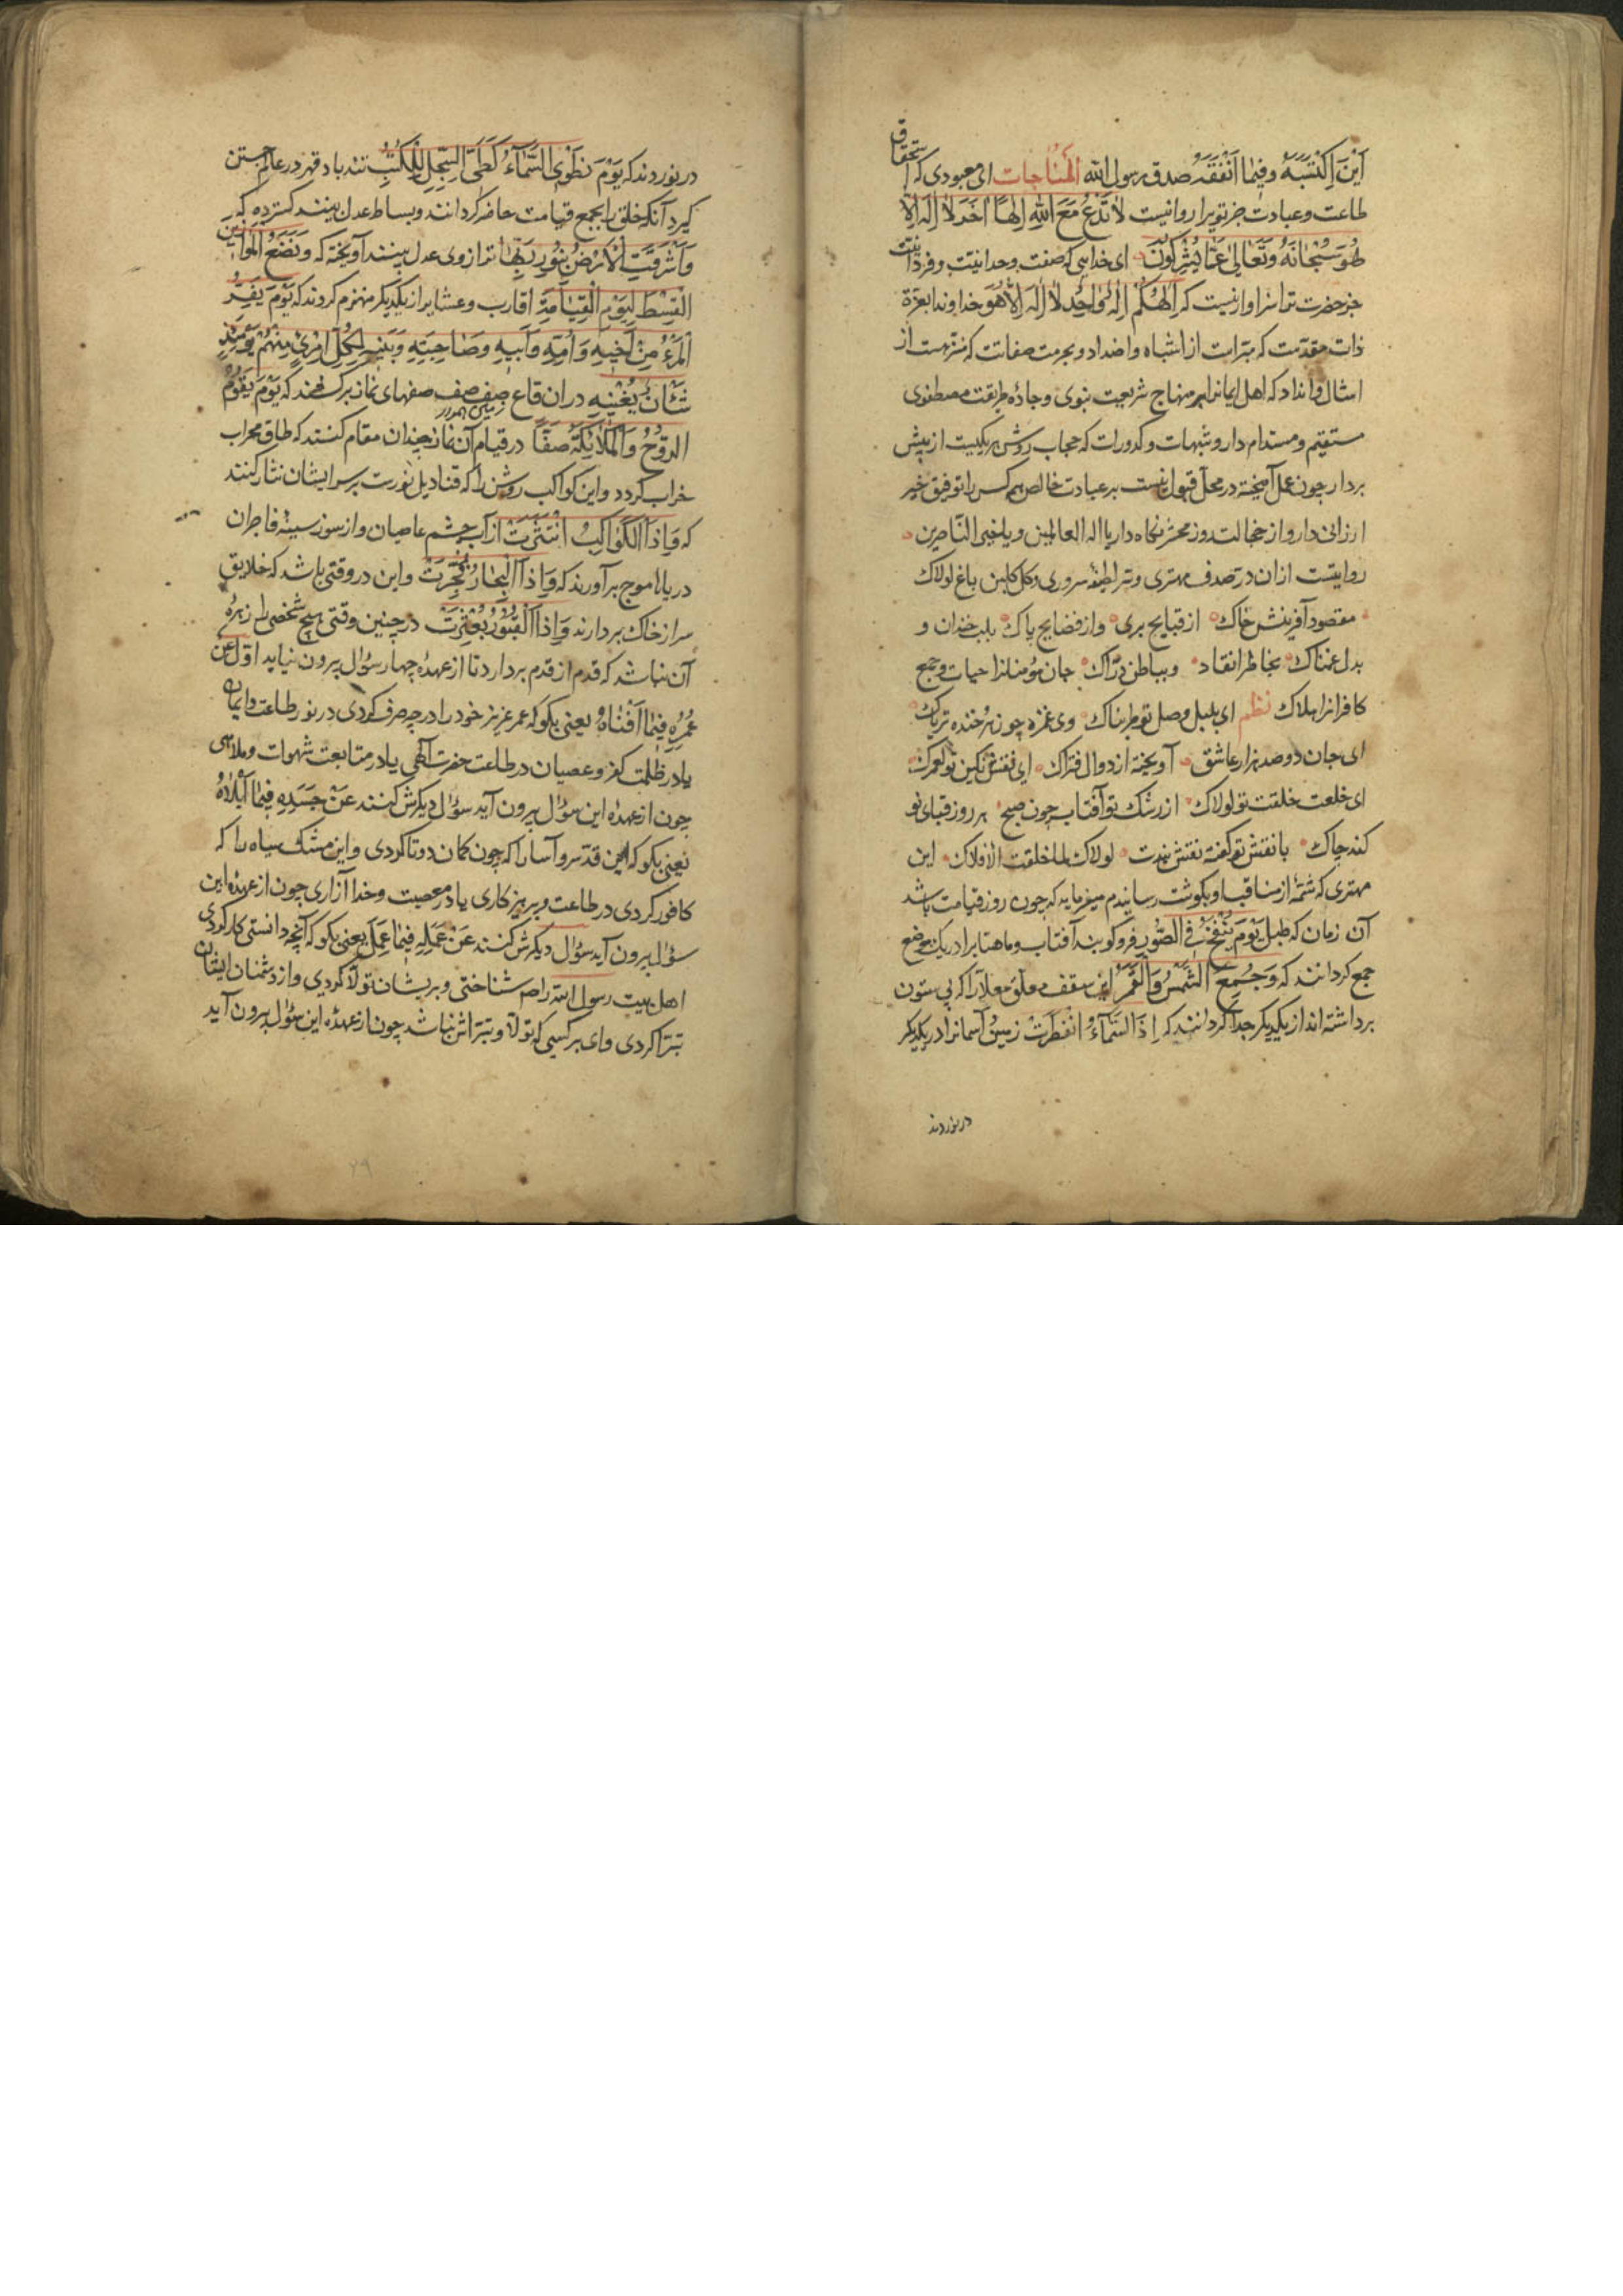 اَیْنَ اِکْتَسَبَهُ وَفِیمٰا اَنْفَقَهُ صدق رسول الله المناجات ای معبودی که استحقاق
طاعت و عبادت جز تو یرا روا نیست لٰا تَدْعُ مَعَ اللهِ اِلٰهًا اٰخَرَ لٰا اِلٰهَ اِلّٰا
هُوَ سُبْحٰانَهُ وَتَعٰالیٰ عَمّٰا یُشْرِکُونَ ای خدایی که صفت وحدانیت و فردانیت
جز حضرت ترا سزاوار نیست که اِلٰهُکُمْ اِلٰهٌ وٰاحِدٌ لٰا اِلٰهَ اِلّٰا هُوَ خداوندا بعزة
ذات مقدّست که مبرّاست از اشباه و اضداد و بحرمت صفاتت که منزهست از
امثال و انداد که اهل ایمانرا بر منهاج شریعت نبوی و جادهٔ طریقت مصطفوی
مستقیم و مستدام دار و شبهات و کدورات که حجاب روش هر یکیست از پیش
بردار چون عمل آمیخته در محل قبول نیست بر عبادت خالص همه کس را توفیق خیر
ارزانی دار و از خجالت روز محشر نگاه دار یا اله العالمین و یا خیر النّاصرین
روایتست ازان در صدف مهتری و سرو لطیفهٔ سروری و کل کلبن باغ لولاک
مقصود آفرینش خاک از قبایح بری و از فضایح پاک بلب خندان و
بدل غمناک بخاطر انقاد و بباطن درّاک جان مؤمنانرا حیات و جمیع
کافرانرا هلاک نظم ای بلبل وصل تو طربناک وی غمزه چون زهر خنده تریاک
ای جان دو صد هزار عاشق آویخته از دوال فتراک ای نقش نکین تو لعمرک
ای خلعت خلقت تو لولاک از رشک تو آفتاب چون صبح هر روز قبای نو
کند چاک با نقش تو کفته نقش بندت لولاک لما خلقت الافلاک این
مهتری که شمّهٔ از مناقب او بکوشت رسانیدم میفرماید که چون روز قیامت باشد
آن زمان که طبل یَوْمَ یُنْفَخُ فِی الصُّورِ فرو کوبند آفتاب و ماهتابرا در یک موضع
جمع کردانند که وَجُمِعَ الشَّمْسُ وَالْقَمَرُ این سقف معلق معلّا را که بی ستون
برداشته اند از یکدیکر جدا کردانند که اِذَا السَّمٰآءُ انْفَطَرَتْ زمین و آسمانرا در یکدیکر
درنوردند
درنوردند که یَوْمَ نَطْوِی السَّمٰآءَ کَطَیِّ السِّجِلِّ لِلْکُتُبِ تند باد قهر در عالم جستن
کیرد آنکه خلق را بجمع قیامت حاضر کردانند و بساط عدل بینند کسترده که
وَاَشْرَقَتِ الْاَرْضُ بِنُورِ رَبِّهٰا ترازوی عدل بینند آویخته که وَنَضَعُ الْمَوٰازِینَ
الْقِسْطَ لِیَوْمِ الْقِیٰامَةِ اقارب و عشایر از یکدیکر منهزم کردند که یَوْمَ یَفِرُّ
الْمَرْءُ مِنْ اَخِیهِ وَاُمِّهِ وَاَبِیهِ وَصٰاحِبَتِهِ وَبَنِیهِ لِکُلِّ امْرِیءٍ مِنْهُمْ یَوْمَئِذٍ
شَأْنٌ یُغْنِیهِ در ان قاع صفصف صفهای نماز برکشند که یَوْمَ یَقُومُ
الرُّوحُ وَالْمَلٰائِکَةُ صَفًّا در قیام آن نماز چندان مقام کنند که طاق محراب
خراب کردد و این کواکب روشن را که قنادیل نورست بر سر ایشان نثار کنند
که وَاِذَا الْکَوٰاکِبُ انْتَثَرَتْ از آب چشم عاصیان و از سوز سینهٔ فاجران
دریاها موج برآورند که وَاِذَا الْبِحٰارُ فُجِّرَتْ و این در وقتی باشد که خلایق
سر از خاک بردارند وَاِذَا الْقُبُورُ بُعْثِرَتْ در چنین وقتی هیچ شخصی را زهرهٔ
آن نباشد که قدم از قدم بردارد تا از عهدهٔ چهار سؤال بیرون نیاید اوّل عَنْ
عُمُرِهِ فِیمٰا اَفْنٰاهُ یعنی بکو که عمر عزیز خود را در چه صرف کردی در نور طاعت و ایمان
یا در ظلمت کفر و عصیان در طاعت حضرت آلهی یا در متابعت شهوات و ملاهی
چون از عهدهٔ این سؤال بیرون آید سؤال دیکرش کنند عَنْ جَسَدِهِ فِیمٰا اَبْلٰاهُ
یعنی بکو که این قدّ سرو آسا را که چون کمان دوتا کردی و این مشک سیاه را که
کافور کردی در طاعت و پرهیزکاری یا در معصیت و خدا آزاری چون از عهدهٔ این
سؤال بیرون آید سؤال دیکرش کنند عَنْ عَمَلِهِ فِیمٰا عَمِلَ یعنی بکو که آنچه دانستی کار کردی
اهل بیت رسول الله را شناختی و بریشان تولّا کردی و از دشمنان ایشان
تبرّا کردی وای بر کسی که تولّا و تبرّاش نباشد چون از عهدهٔ این سؤال بیرون آید
۲۹